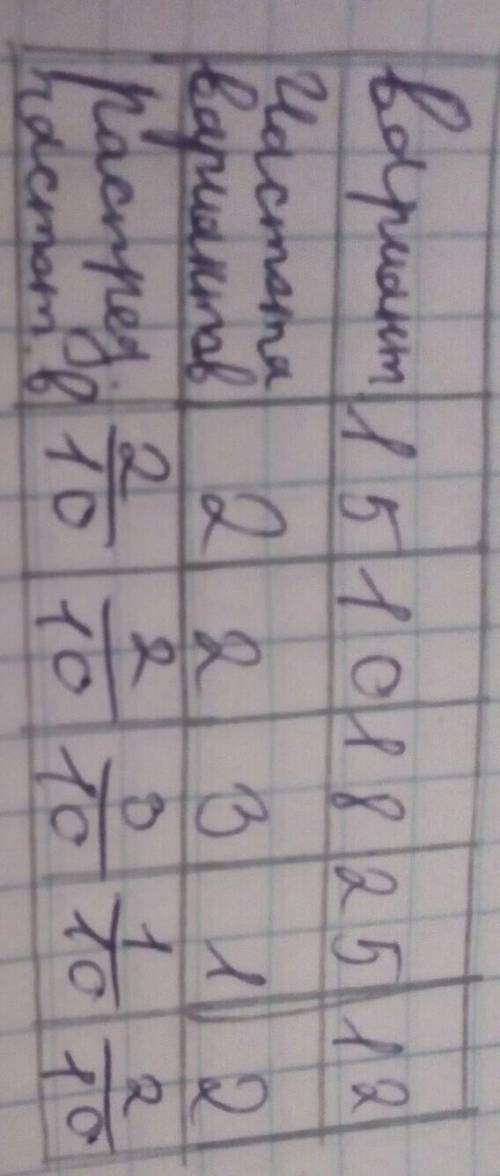 Вариант. 15 10 18 25 12
Частота вариантов 2 2 3 1 2
Распред. частот. в 2/10 2/10 3/10 1/10 2/10